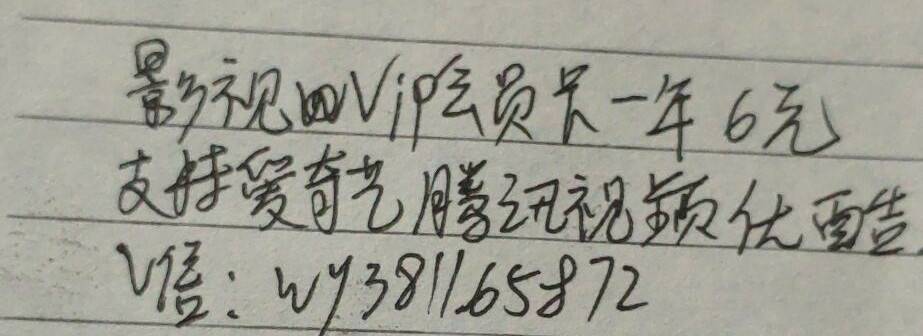 影视VVip会员卡一年6元
支持爱奇艺腾讯视频优酷
V信：wy381165872